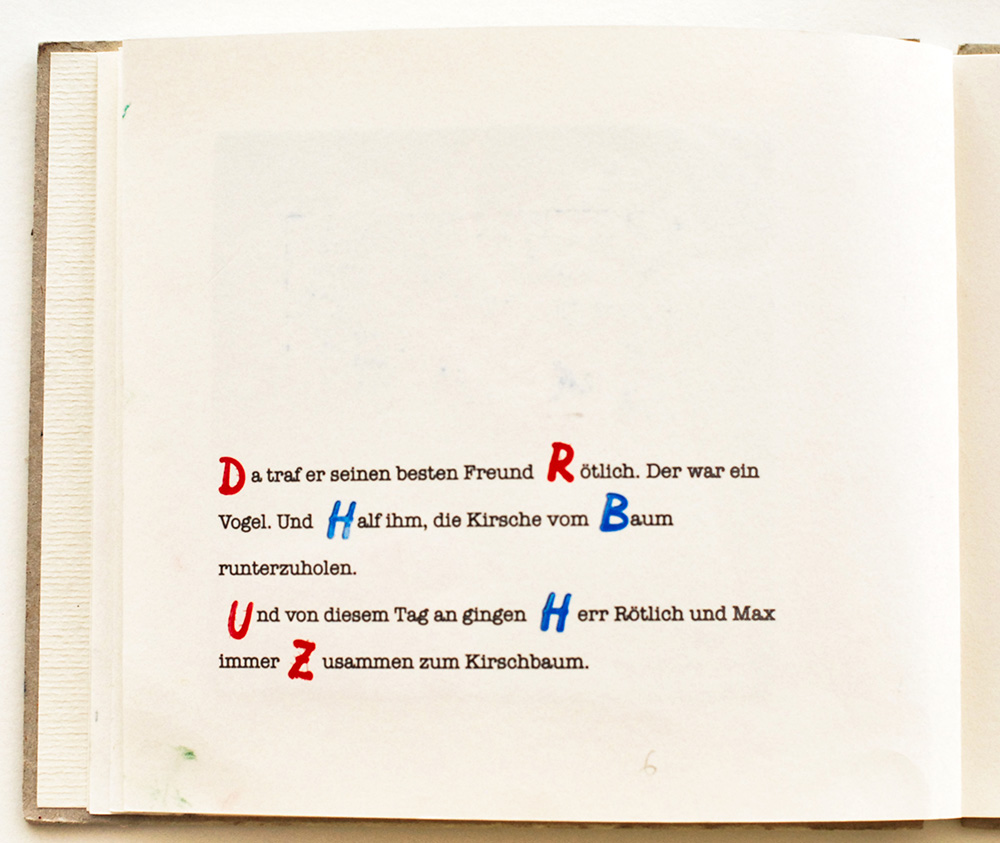 Da traf er seinen besten Freund Rötlich. Der war ein
Vogel. Und Half ihm, die Kirsche vom Baum
runterzuholen.
Und von diesem Tag an gingen Herr Rötlich und Max
immer Zusammen zum Kirschbaum.
6